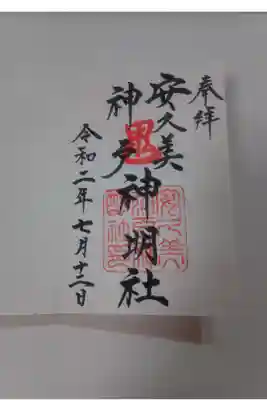 奉拝
安久美
神戸神明社
令和二年七月十二日